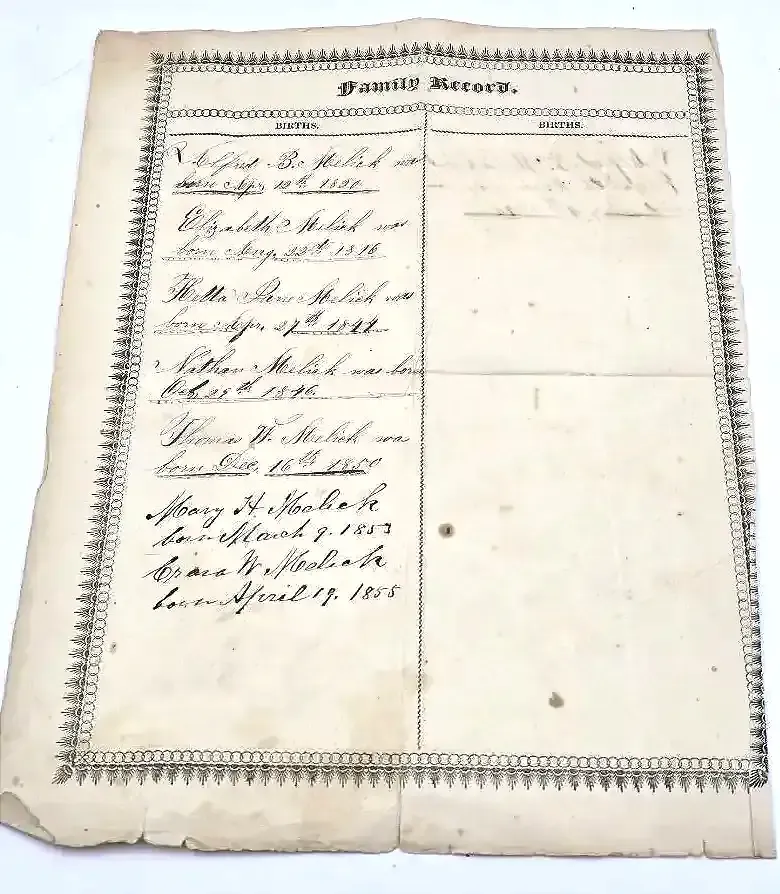 Family Record.
BIRTHS.
BIRTHS.
Alfred B. Melick was
born Apr, 12th 1820
Elizabeth Melick was
born Aug, 22th 1816
Hetta Jane Melick was
born Apr, 27th 1844
Nathan Melick was born
Oct, 29th 1846.
Thomas W. Melick was
born Dec, 16th 1850
Mary H Melick
born March 9. 1853
W Melick
born April 19. 1855